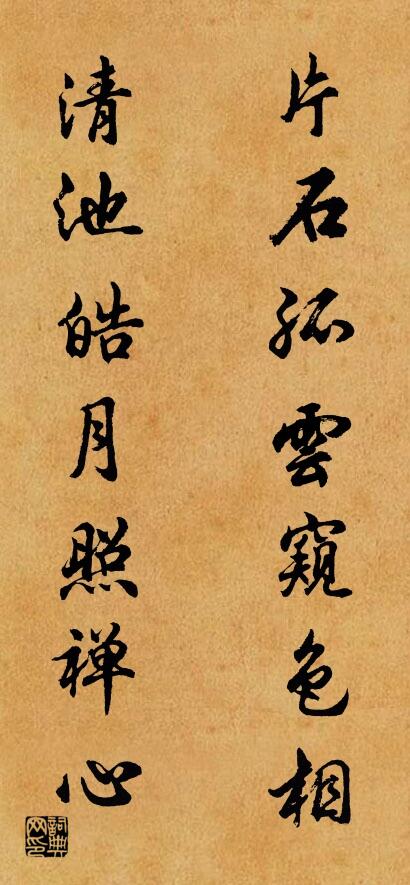 片石孤雲窺色相
清池皓月照禅心
詞典网印